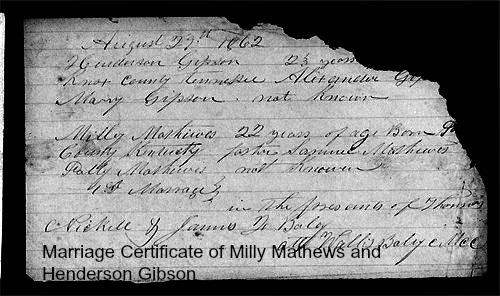 August 29th 1862
Henderson Gipson 23 years
Knox County Tennessee Alexander Gip
Mary Gipson not Known
Milly Mathewes 22 years of age Born
County Kentucky Samuel Mathewes
Sally Mathewes not Known
1st Marriage
in the presence of Thomas
Nickell & James Baly
Wallis Baly
Marriage Certificate of Milly Mathews and
Henderson Gibson